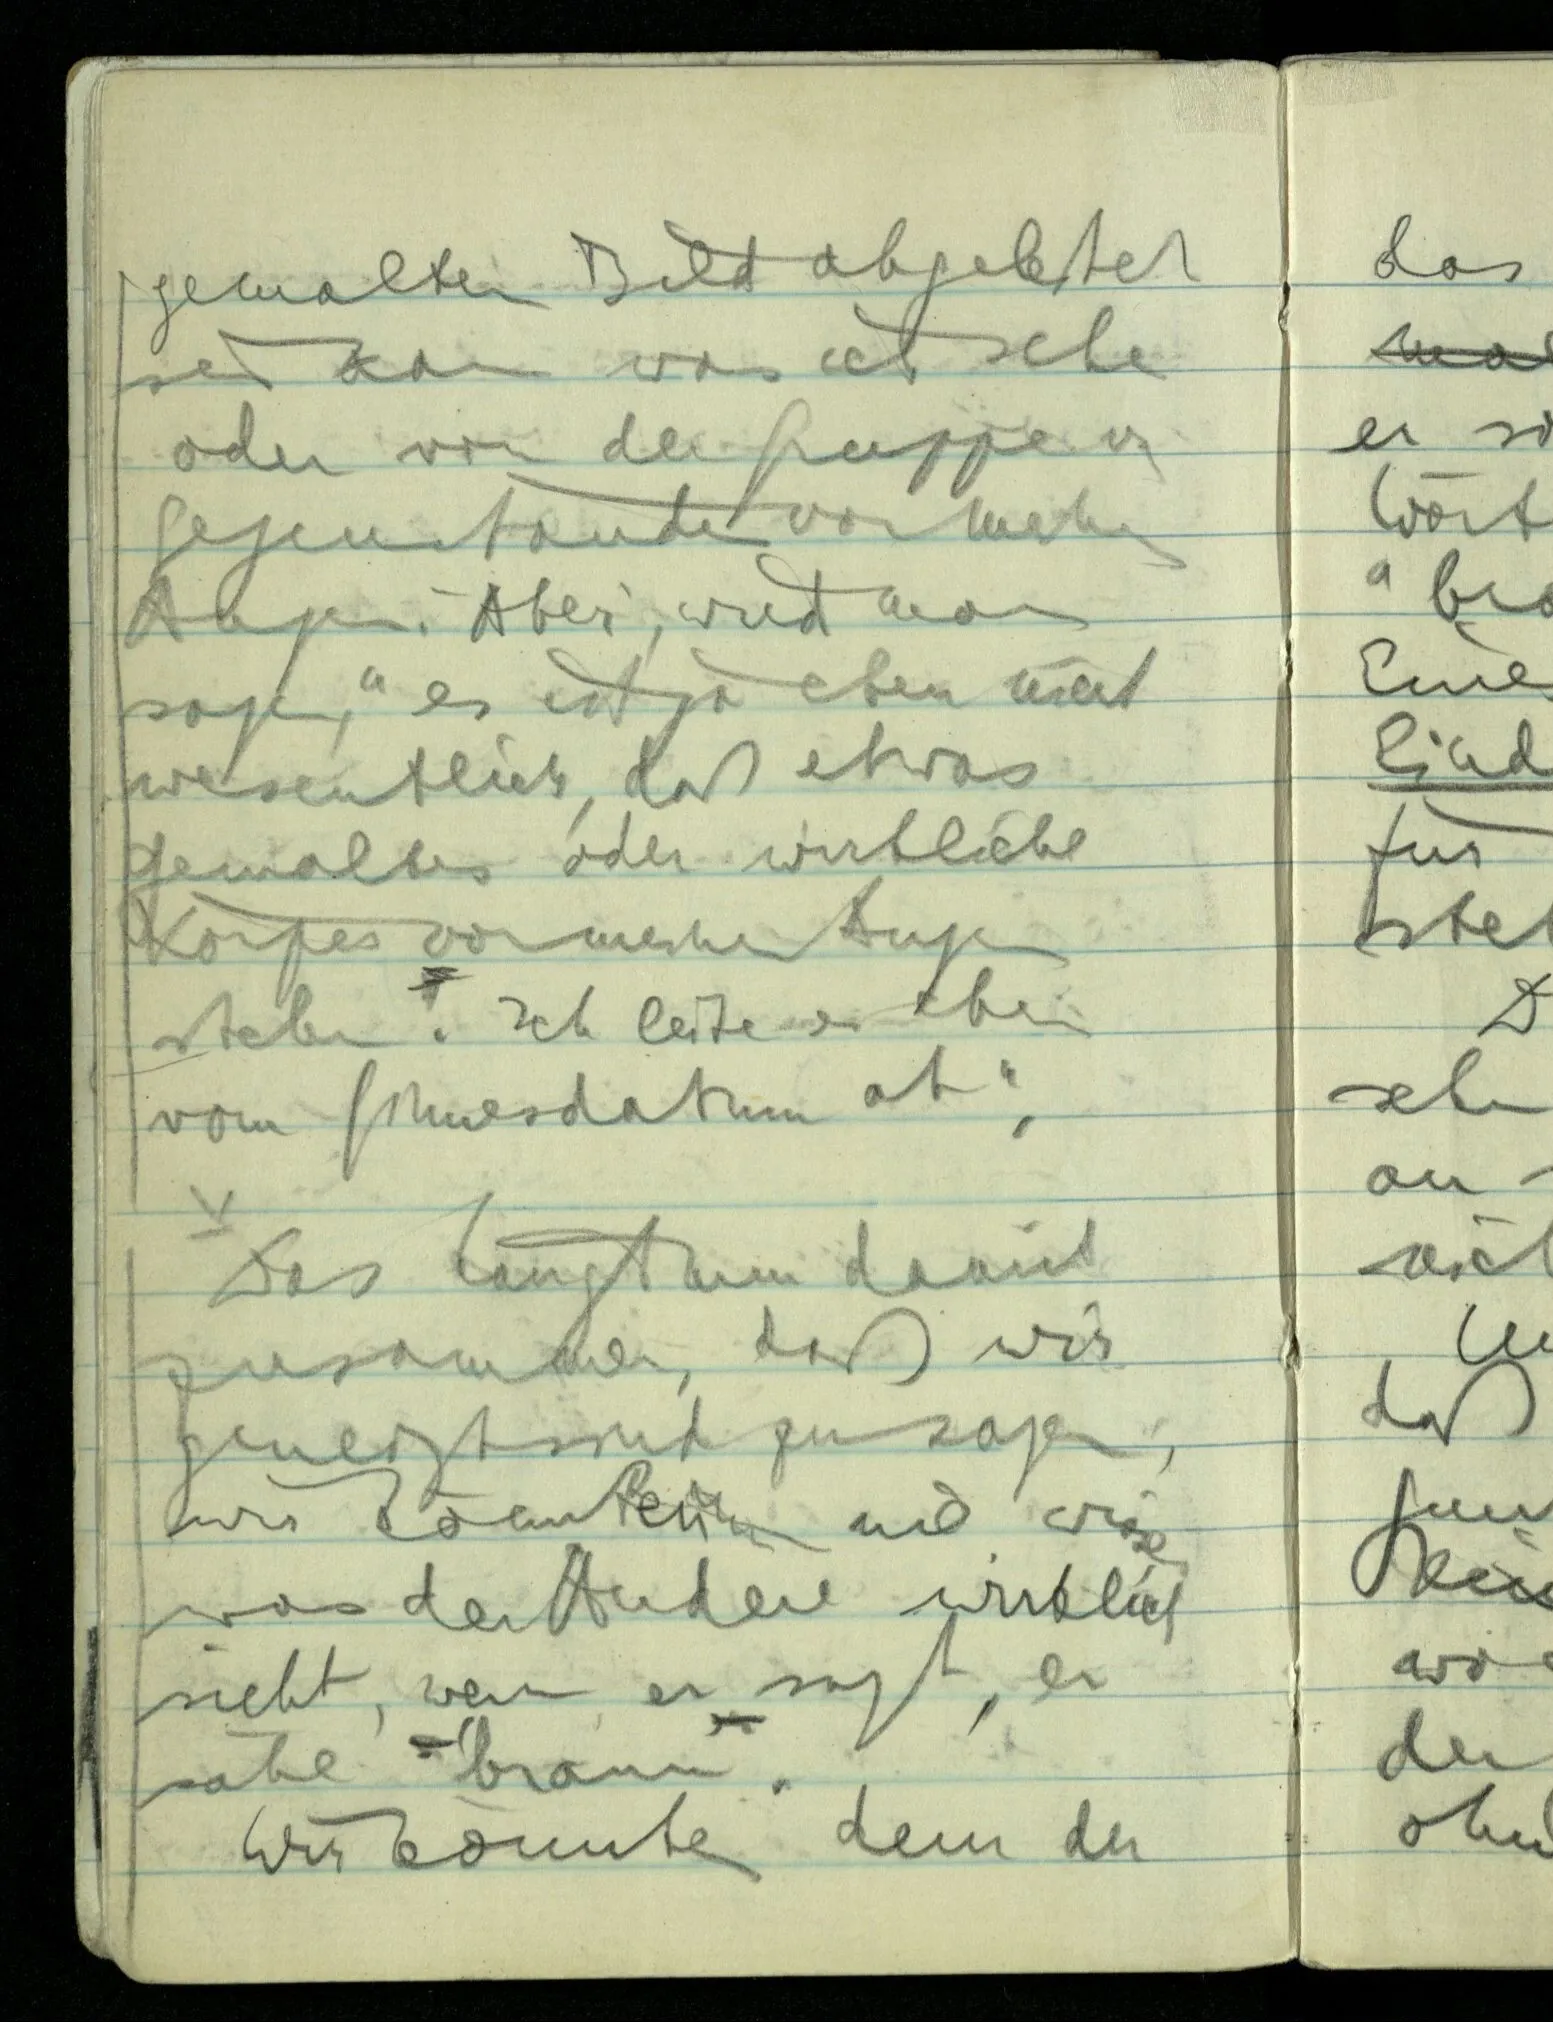 gemalten Bild abgeleitet
sein kann was ich sehe
oder von der Gruppe v.
Gegenständen vor meinen
Augen. Aber, wird man
sagen, "es ist ja eben nicht
wesentlich, daß etwas
gemaltes oder wirkliche
Körper vor meinen Augen
stehen. Ich leite es eben
vom Sinnesdatum ab",
Das hängt nun damit
zusammen, daß wir
geneigt sind zu sagen,
wir könnten nie wissen
was der Andere wirklich
sieht, wenn er sagt, er
sähe "braun".
Wir könnten dem der
das
er so
Wört
"bra
Eine
für
steh
D
sehen
an
nich
daß
der